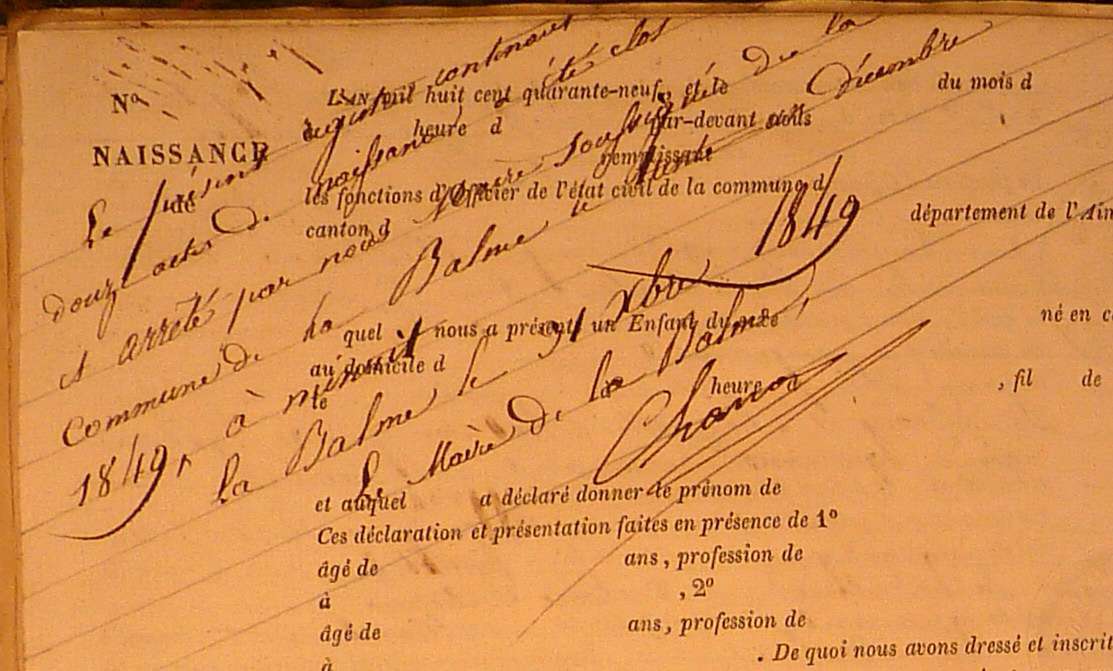 Nº
NAISSANCE
de
L'AN mil huit cent quarante-neuf, et le du mois d
heure d par-devant nous
remplissant
les fonctions d'officier de l'état civil de la commune d
canton d département de l'Ain
quel nous a présenté un Enfant du sexe né en c
au domicile d
le à heure d , fil de
et auquel a déclaré donner le prénom de
Ces déclaration et présentation faites en présence de 1º
âgé de ans, profession de
à , 2º
âgé de ans, profession de
à . De quoi nous avons dressé et inscrit
Le présent registre contenant
douze actes de naissance a été clos
et arreté par nous Maire soussigné de la
commune de La Balme le trente un décembre
1849, à minuit
La Balme le 31 Xbre 1849
Le Maire de la Balme,